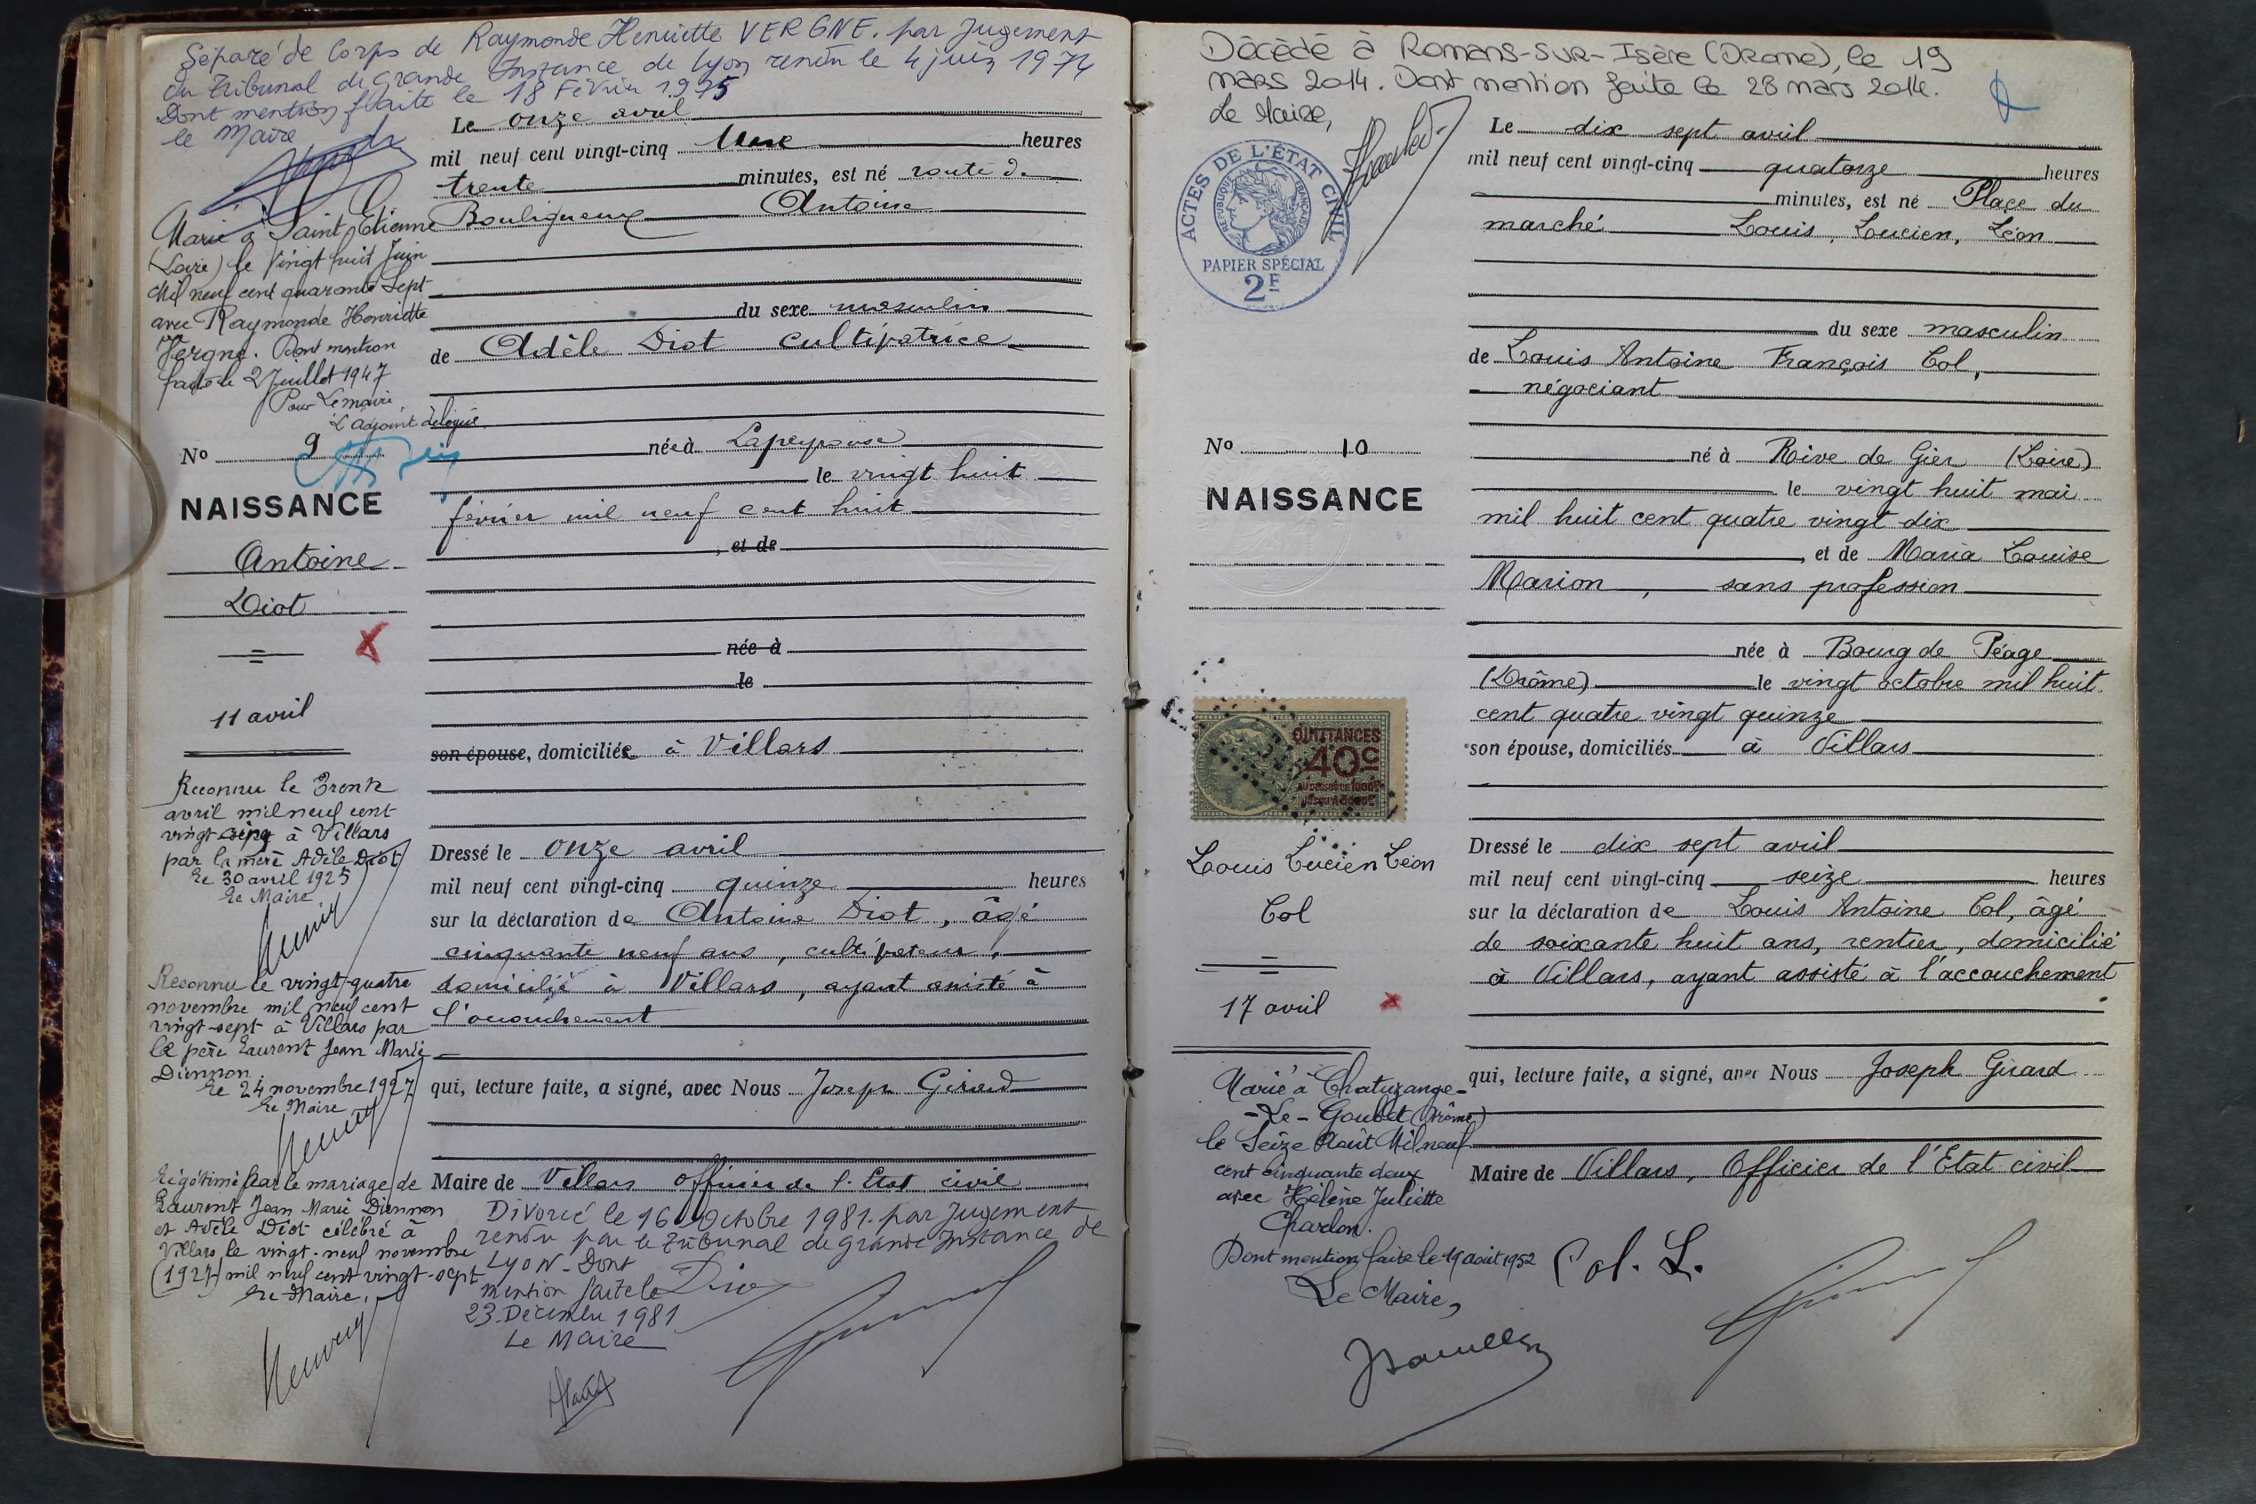 Séparé de Corps de Raymonde Henriette VERGNE. par Jugement
du Tribunal de Grande Instance de Lyon rendu le 4 juin 1974
Dont mention faite le 18 Février 1975
le Maire
Le onze avril
mil neuf cent vingt-cinq heures
trente minutes, est né route de
Bouligneux Antoine
du sexe masculin
de Adèle Diot cultivatrice
née à Lapeyrouse
le vingt huit
février mil neuf cent huit
, et de
née à
le
son épouse, domiciliée à Villars
Dressé le onze avril
mil neuf cent vingt-cinq quinze heures
sur la déclaration de Antoine Diot, âgé
cinquante neuf ans, cultivateur,
domicilié à Villars, ayant assisté à
l'accouchement
qui, lecture faite, a signé, avec Nous Joseph Girard
Maire de Villars officier de l'Etat civil
Marié à Saint Etienne
(Loire) le Vingt huit Juin
Mil neuf cent quarante Sept
avec Raymonde Henriette
Vergne. Dont mention
faite le 2 Juillet 1947
Pour Le maire
L'adjoint délégué
No 9
NAISSANCE
Antoine
Diot
11 avril
Reconnu le Trente
avril mil neuf cent
vingt-cinq à Villars
par la mère Adèle Diot
Le 30 avril 1925
Le Maire
Reconnu le vingt-quatre
novembre mil neuf cent
vingt-sept à Villars par
le père Laurent Jean Marie
Diennon.
Le 24 novembre 1927
Le Maire
Légitimé par le mariage de
Laurent Jean Marie Diennon
et Adèle Diot célébré à
Villars le vingt-neuf novembre
(1927) mil neuf cent vingt-sept
Le Maire.
Divorcé le 16 Octobre 1981. par Jugement
rendu par le Tribunal de grande Instance de
LYON - Dont
mention faite le
23 Décembre 1981
Le Maire
Diot
Décédé à Romans-sur-Isère (Drome), le 19
mars 2014. Dont mention faite le 28 mars 2014.
Le Maire,
ACTES DE L'ÉTAT CIVIL
RÉPUBLIQUE FRANÇAISE
PAPIER SPÉCIAL
2F
Le dix sept avril
mil neuf cent vingt-cinq quatorze heures
minutes, est né Place du
marché Louis, Lucien, Léon
du sexe masculin
de Louis Antoine François Col,
négociant
né à Rive de Gier (Loire)
le vingt huit mai
mil huit cent quatre vingt dix
, et de Maria Louise
Marion, sans profession
née à Bourg de Péage
(Drôme) le vingt octobre mil huit
cent quatre vingt quinze
son épouse, domiciliés à Villars
Dressé le dix sept avril
mil neuf cent vingt-cinq seize heures
sur la déclaration de Louis Antoine Col, âgé
de soixante huit ans, rentier, domicilié
à Villars, ayant assisté à l'accouchement
qui, lecture faite, a signé, avec Nous Joseph Girard
Maire de Villars, Officier de l'Etat civil
No 10
NAISSANCE
QUITTANCES
40c
Louis Lucien Léon
Col
17 avril
Marié à Chatuzange-
-Le-Goubet (Drôme)
le Seize Août Mil neuf
cent cinquante deux
avec Hélène Juliette
Charlon.
Dont mention faite le 19 août 1952
Le Maire,
Col. L.